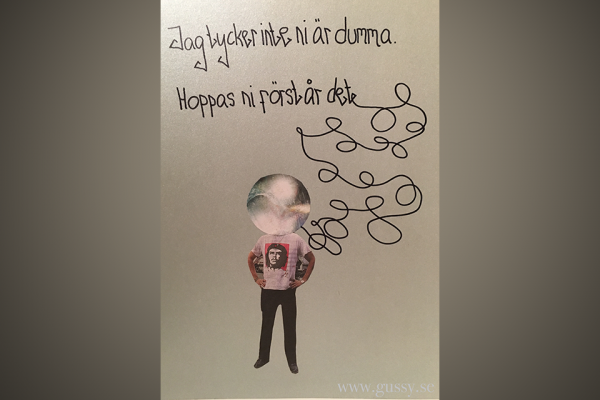 Jag tycker inte ni är dumma.
Hoppas ni förstår det
www.gussy.se